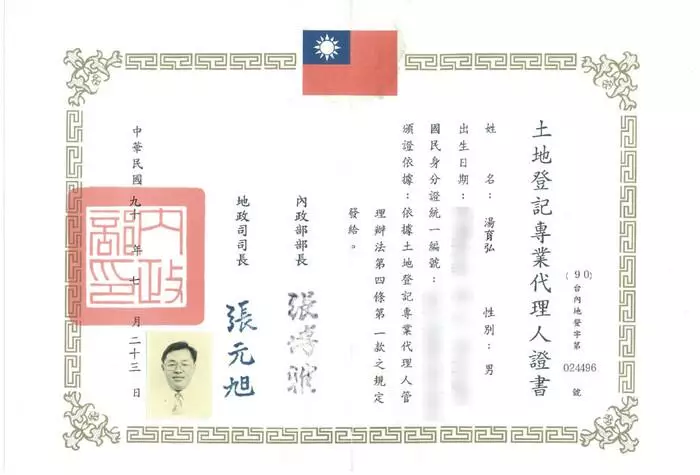 土地登記專業代理人證書
(90)台內地登字第 024496 號
姓 名:湯育弘 性別:男
出生日期:
國民身分證統一編號:
頒證依據:依據土地登記專業代理人管
理辦法第四條第一款之規定
發給。
內政部部長 張博雅
地政司司長 張元旭
中華民國 九十 年 七 月 二十三 日
內政部印